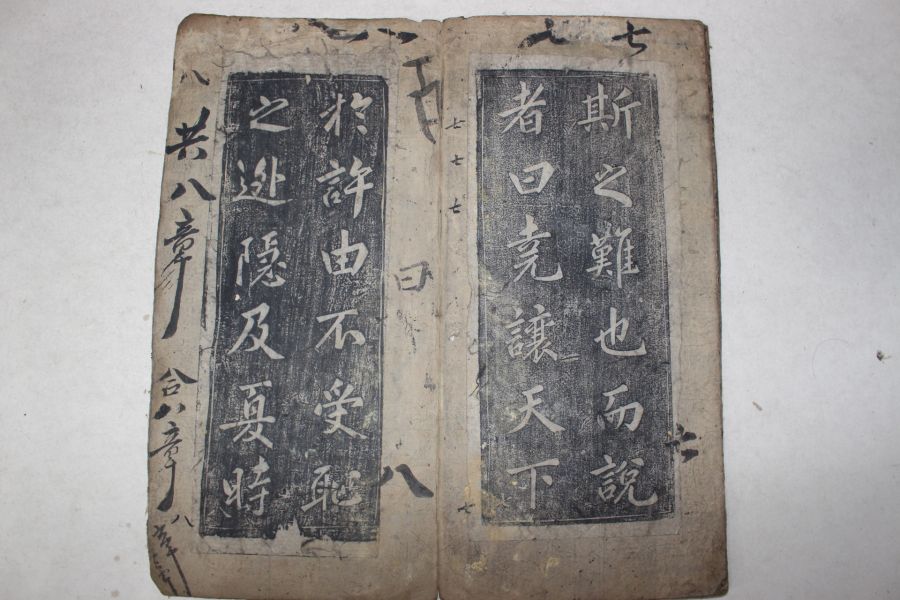 斯之難也而說
者曰堯讓天下
於許由不受恥
之逃隱及夏時
七
七七七
六
七
八
曰
八
共八章
合八章
八